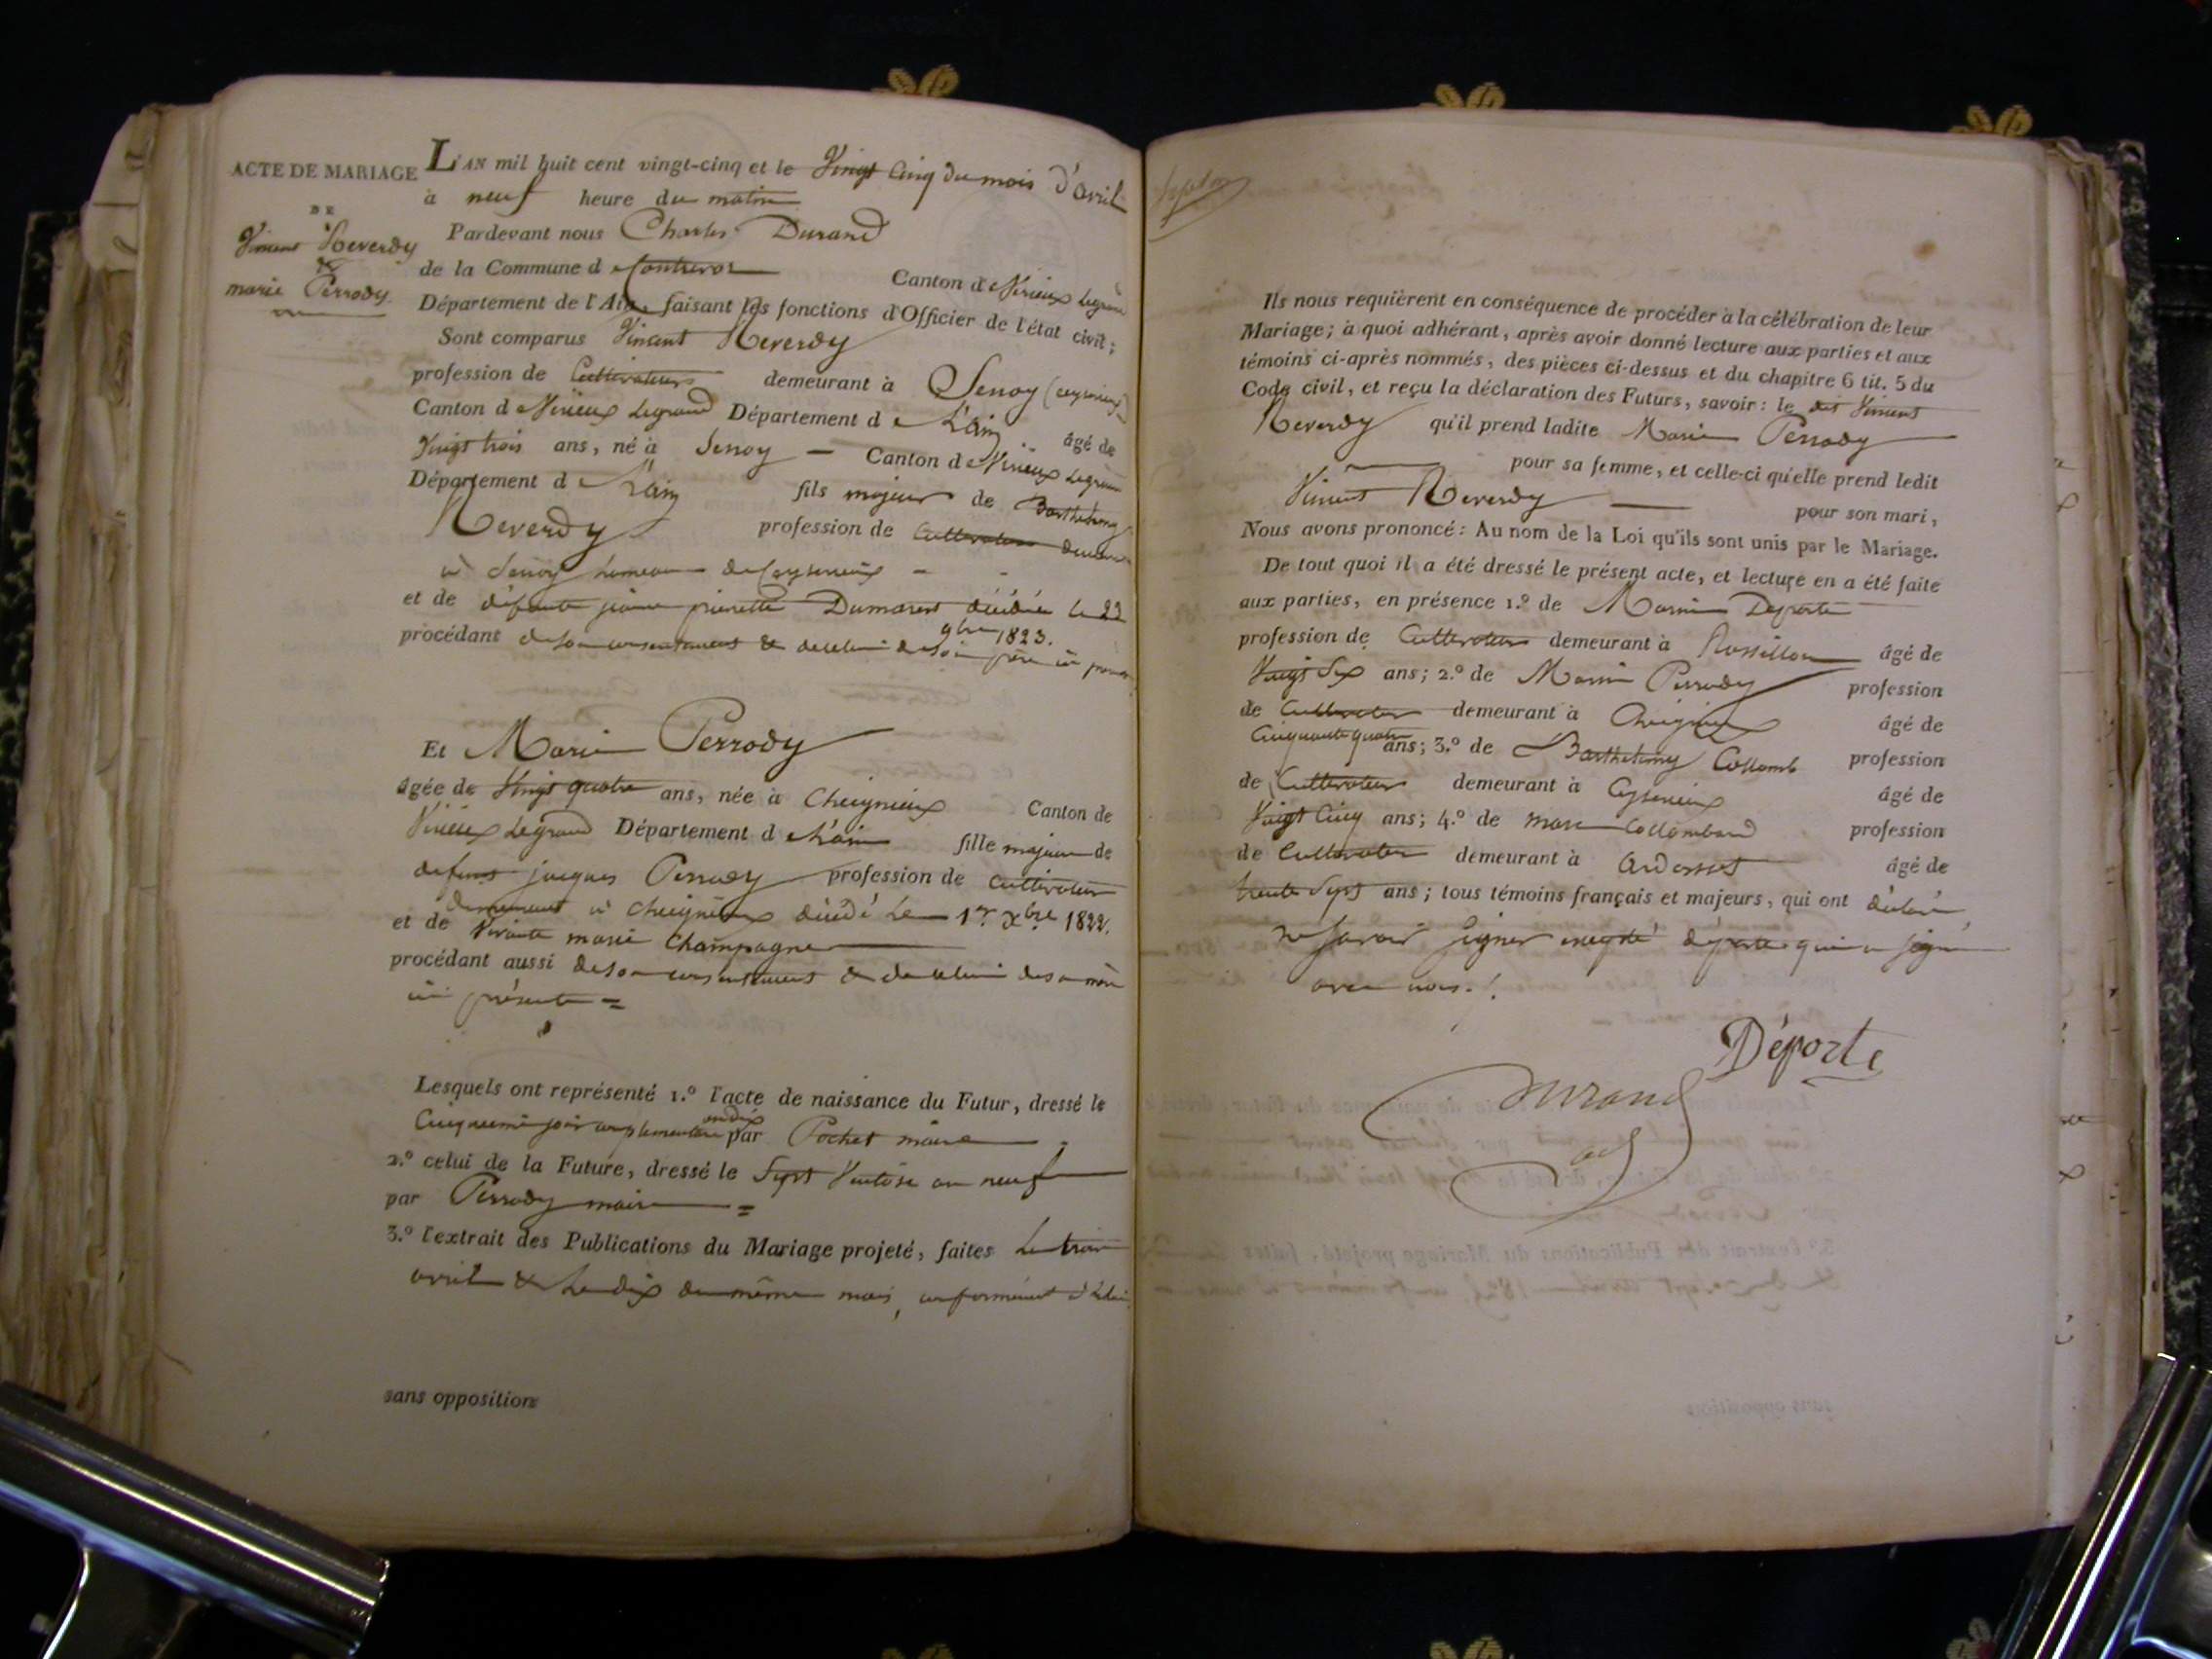 ACTE DE MARIAGE
DE
Vincent Reverdy
&
marie Perrody.
L'AN mil huit cent vingt-cinq et le Vingt Cinq du mois d'avril
à neuf heure du matin
Pardevant nous Charles Durand
de la Commune d e Contrevoz Canton d e Virieux Legrand
Département de l'Ain, faisant les fonctions d'Officier de l'état civil;
Sont comparus Vincent Reverdy
profession de Cultivateur demeurant à Senoy (ceyzerieux)
Canton d e Virieux Legrand Département d e L'ain âgé de
Vingt trois ans, né à Senoy — Canton d e Virieux Legrand
Département d e L'ain fils majeur de Barthelemy
Reverdy profession de Cultivateur demeurant
à Senoy hameau de Ceyzerieux
et de défunte jeanne pierrette Dumarest décédée le 22
9bre 1823.
procédant de son consentement & de celui de son père ici présent
Et Marie Perrody
âgée de Vingt quatre ans, née à Cheignieux Canton de
Virieux Legrand Département d e L'ain fille majeure de
defunt jacques Perrody profession de Cultivateur
demeurant à Cheignieux décédé le 1er xbre 1822.
et de Vivante marie Champagne
procédant aussi de son consentement & de celui de sa mère
ici présente =
Lesquels ont représenté 1.º l'acte de naissance du Futur, dressé le
Cinquieme jour complementaire an dix par Pochet maire
2.º celui de la Future, dressé le Sept Ventose an neuf
par Perrody maire =
3.º l'extrait des Publications du Mariage projeté, faites Le trois
avril & Le dix du même mois, conformément à la loi
sans opposition
Ils nous requièrent en conséquence de procéder à la célébration de leur
Mariage; à quoi adhérant, après avoir donné lecture aux parties et aux
témoins ci-après nommés, des pièces ci-dessus et du chapitre 6 tit. 5 du
Code civil, et reçu la déclaration des Futurs, savoir: le dit Vincent
Reverdy qu'il prend ladite Marie Perrody
pour sa femme, et celle-ci qu'elle prend ledit
Vincent Reverdy pour son mari,
Nous avons prononcé: Au nom de la Loi qu'ils sont unis par le Mariage.
De tout quoi il a été dressé le présent acte, et lecture en a été faite
aux parties, en présence 1.º de Marin Deporte
profession de Cultivateur demeurant à Rossillon âgé de
Vingt Six ans; 2.º de Marin Perrody profession
de Cultivateur demeurant à Cheignieux âgé de
Cinquante quatre ans; 3.º de Barthelemy Collomb profession
de Cultivateur demeurant à Ceyzerieux âgé de
Vingt Cinq ans; 4.º de marc Collomband profession
de Cultivateur demeurant à Ardosset âgé de
trente Sept ans; tous témoins français et majeurs, qui ont déclaré
ne Savoir Signer excepté déporte qui a signé
avec nous.
Déporte
Durand
adj